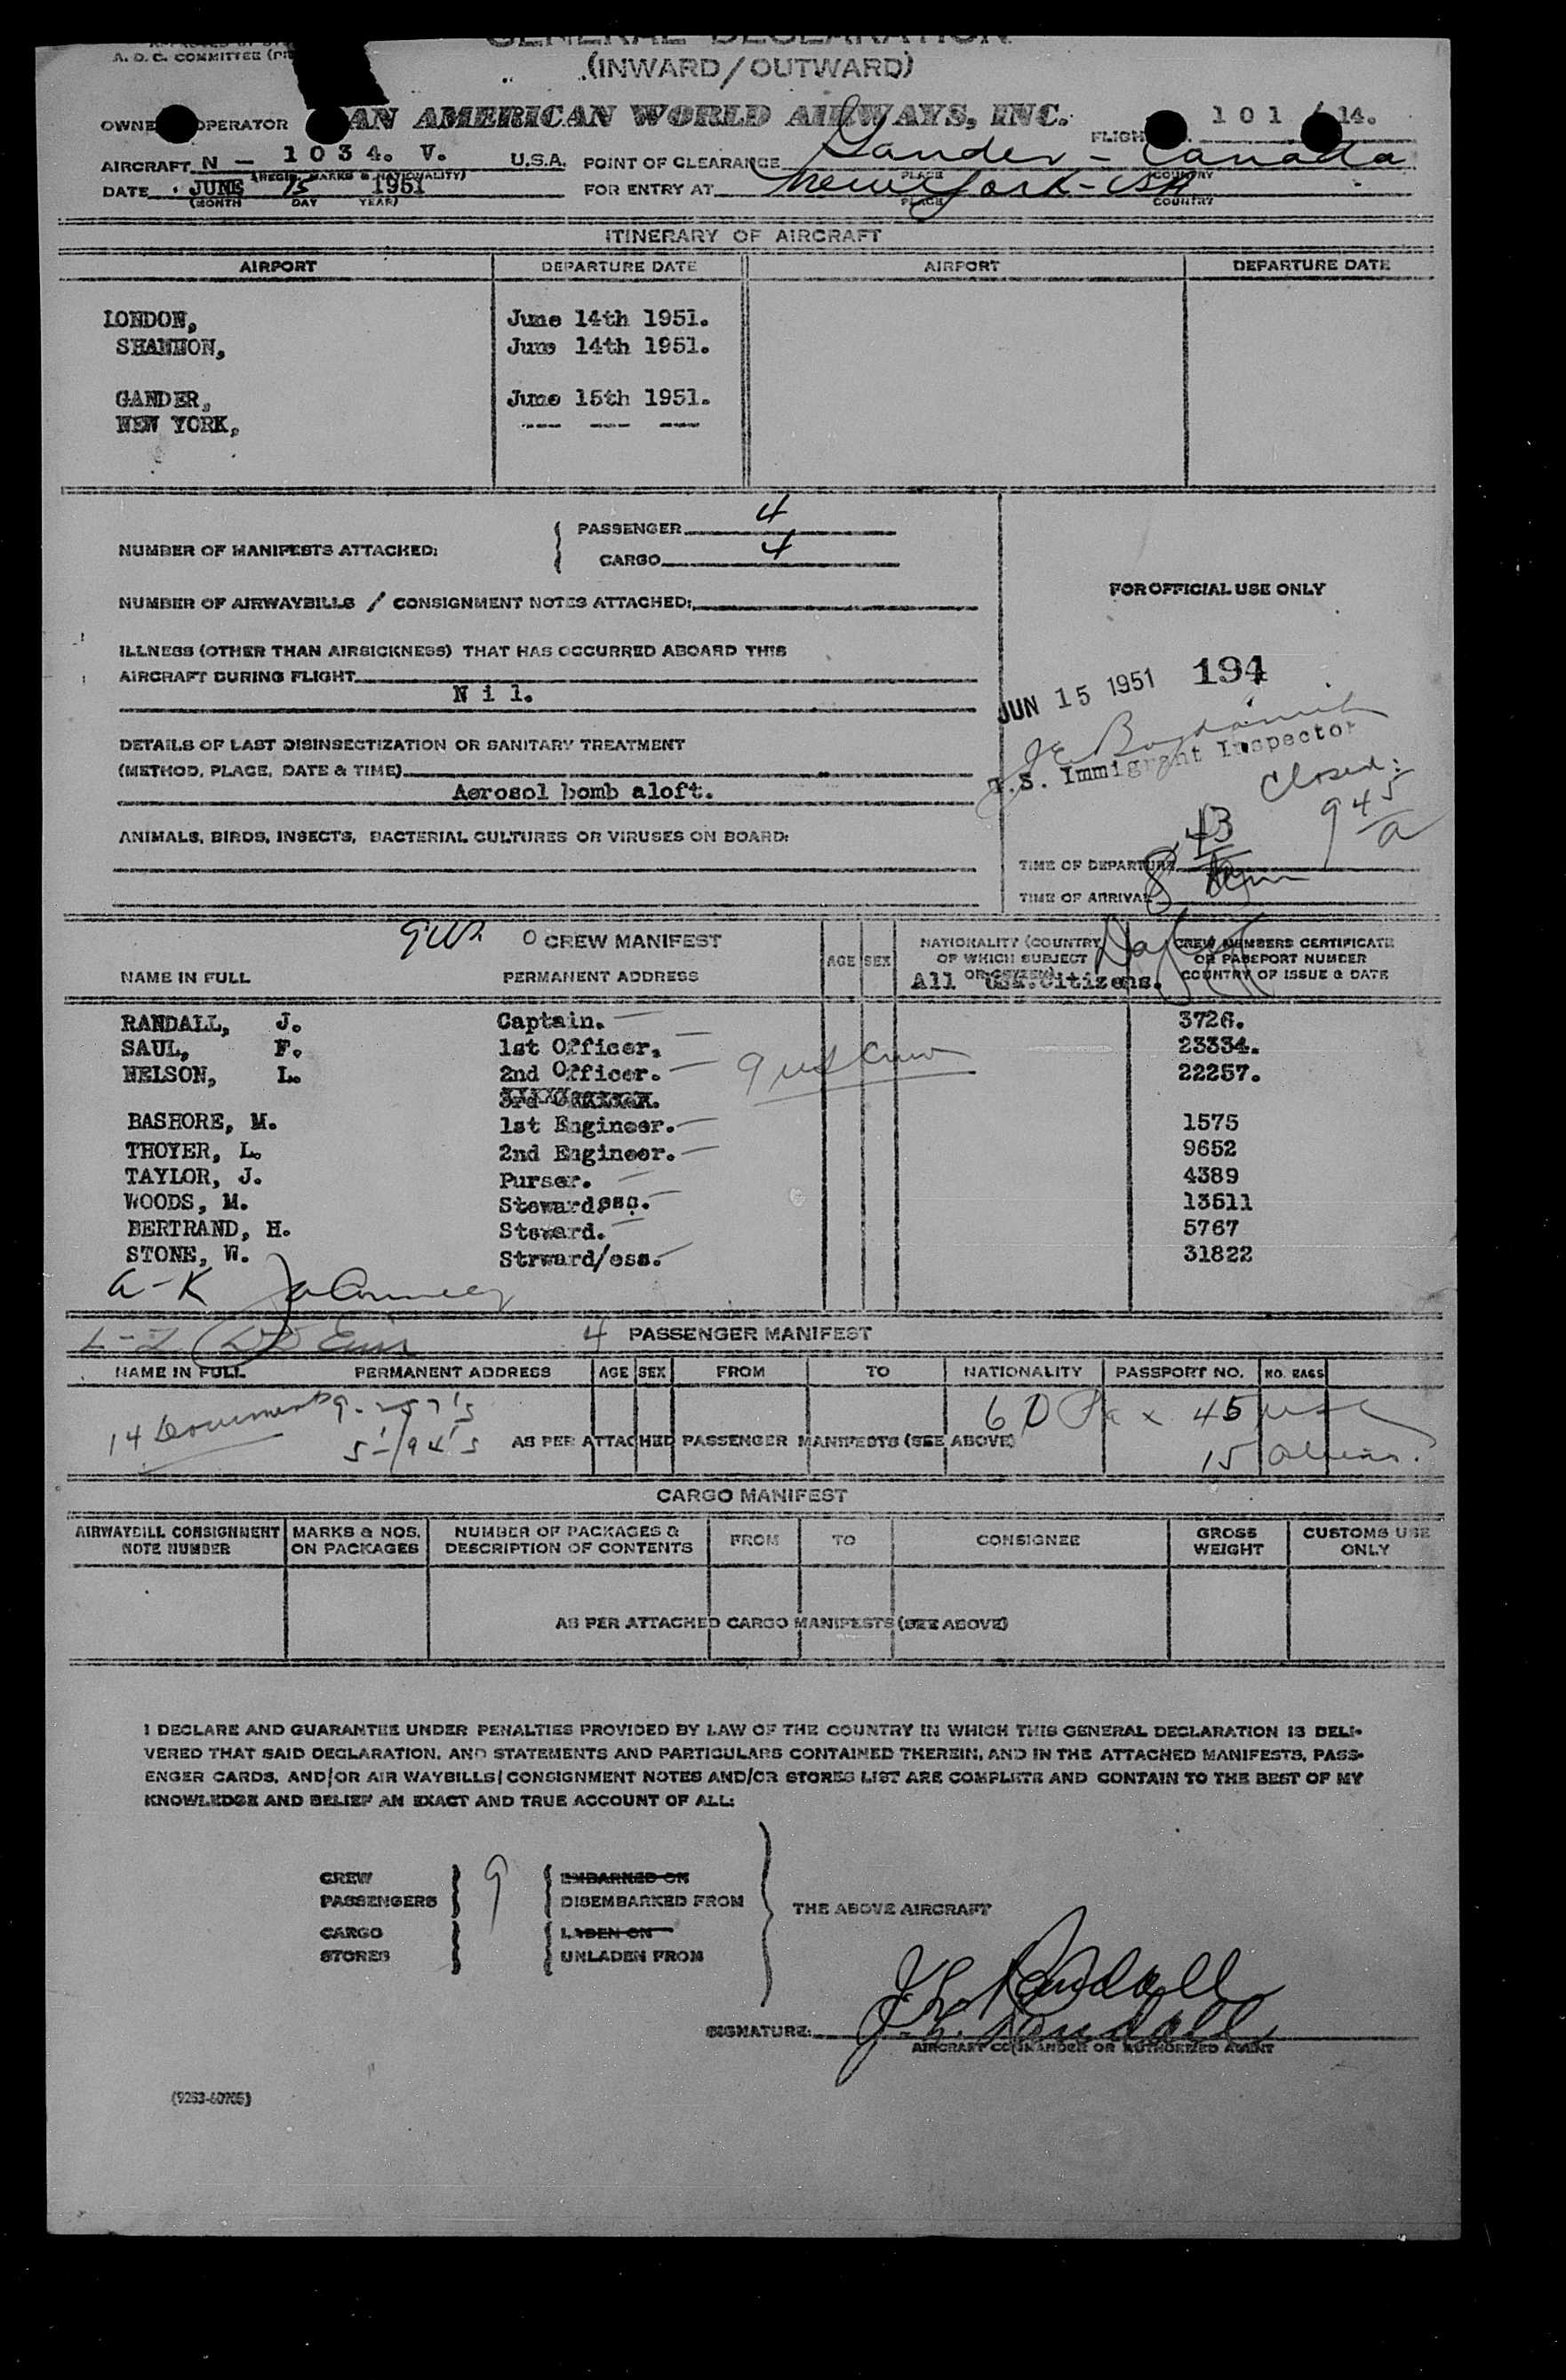 A. D. C. COMMITTEE
GENERAL DECLARATION
(INWARD/OUTWARD)
OPERATOR AN AMERICAN WORLD AIRWAYS, INC. 101/14.
AIRCRAFT N - 1034. V. U.S.A. POINT OF CLEARANCE Gander - Canada
(REGIS. MARKS & NATIONALITY) PLACE COUNTRY
DATE JUNE 15 1951 FOR ENTRY AT New York - USA
(MONTH DAY YEAR) PLACE COUNTRY
ITINERARY OF AIRCRAFT
AIRPORT DEPARTURE DATE AIRPORT DEPARTURE DATE
LONDON, June 14th 1951.
SHANNON, June 14th 1951.
GANDER, June 15th 1951.
NEW YORK, --- --- ---
NUMBER OF MANIFESTS ATTACHED: { PASSENGER 4
CARGO 4
FOR OFFICIAL USE ONLY
NUMBER OF AIRWAYBILLS / CONSIGNMENT NOTES ATTACHED:
ILLNESS (OTHER THAN AIRSICKNESS) THAT HAS OCCURRED ABOARD THIS
AIRCRAFT DURING FLIGHT
Nil.
JUN 15 1951 194
DETAILS OF LAST DISINSECTIZATION OR SANITARY TREATMENT
(METHOD, PLACE, DATE & TIME)
Aerosol bomb aloft.
U.S. Immigrant Inspector
Closed:
9 45/a
ANIMALS, BIRDS, INSECTS, BACTERIAL CULTURES OR VIRUSES ON BOARD:
TIME OF DEPARTURE
TIME OF ARRIVAL
CREW MANIFEST
NAME IN FULL PERMANENT ADDRESS AGE SEX NATIONALITY (COUNTRY OF WHICH SUBJECT OR CITIZEN) CREW MEMBERS CERTIFICATE OR PASSPORT NUMBER COUNTRY OF ISSUE & DATE
All USA. Citizens.
RANDALL, J. Captain. 3726.
SAUL, F. 1st Officer. 23334.
NELSON, L. 2nd Officer. 9 US Crew 22257.
BASHORE, M. 1st Engineer. 1575
THOYER, L. 2nd Engineer. 9652
TAYLOR, J. Purser. 4389
WOODS, M. Stewardess. 13611
BERTRAND, H. Steward. 5767
STONE, W. Strward/ess. 31822
A-K
L-Z
4 PASSENGER MANIFEST
NAME IN FULL PERMANENT ADDRESS AGE SEX FROM TO NATIONALITY PASSPORT NO. NO. BAGS
14 Documents 9-257's 60 Pax 45 USC
5-I94's AS PER ATTACHED PASSENGER MANIFESTS (SEE ABOVE) 15 Aliens.
CARGO MANIFEST
AIRWAYBILL CONSIGNMENT NOTE NUMBER MARKS & NOS. ON PACKAGES NUMBER OF PACKAGES & DESCRIPTION OF CONTENTS FROM TO CONSIGNEE GROSS WEIGHT CUSTOMS USE ONLY
AS PER ATTACHED CARGO MANIFESTS (SEE ABOVE)
I DECLARE AND GUARANTEE UNDER PENALTIES PROVIDED BY LAW OF THE COUNTRY IN WHICH THIS GENERAL DECLARATION IS DELI-
VERED THAT SAID DECLARATION, AND STATEMENTS AND PARTICULARS CONTAINED THEREIN, AND IN THE ATTACHED MANIFESTS, PASS-
ENGER CARDS, AND/OR AIR WAYBILLS/CONSIGNMENT NOTES AND/OR STORES LIST ARE COMPLETE AND CONTAIN TO THE BEST OF MY
KNOWLEDGE AND BELIEF AN EXACT AND TRUE ACCOUNT OF ALL:
CREW 9 EMBARKED ON
PASSENGERS DISEMBARKED FROM
THE ABOVE AIRCRAFT
CARGO LADEN ON
STORES UNLADEN FROM
J. L. Randall
SIGNATURE: J. L. Randall
AIRCRAFT COMMANDER OR AUTHORIZED AGENT